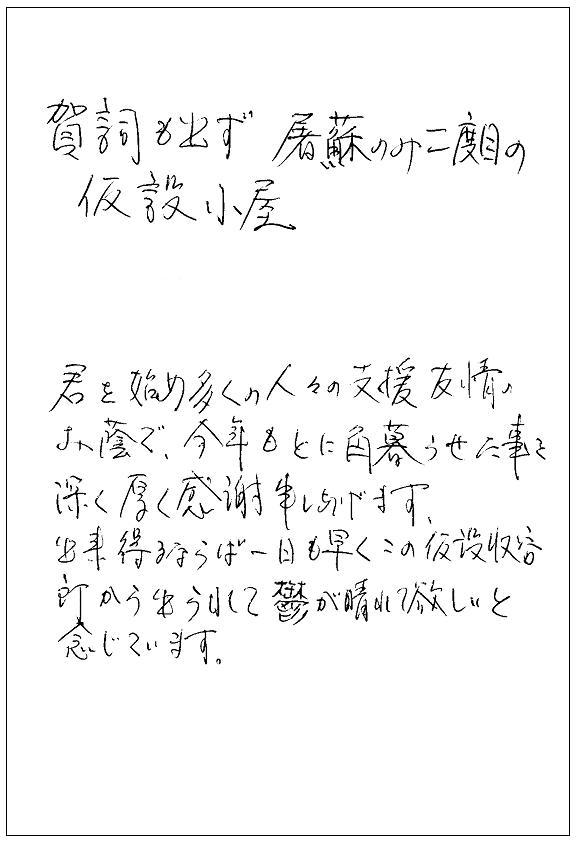 賀詞も出ず 屠蘇のみ二度目の
仮設小屋
君を始め多くの人々の支援友情の
お蔭で、今年もとに角暮らせた事を
深く厚く感謝申し上げます、
出来得るならば一日も早くこの仮設収容
所から出られて鬱が晴れて欲しいと
念じています。